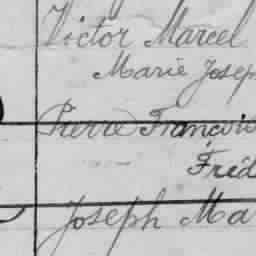 Victor Marcel
Marie Josep
Pierre François
Fréd
Joseph Ma